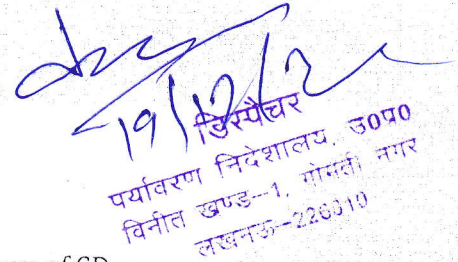 19/12/2
डिस्पैचर
पर्यावरण निदेशालय, उ०प्र०
विनीत खण्ड-1, गोमती नगर
लखनऊ-226010
of CD